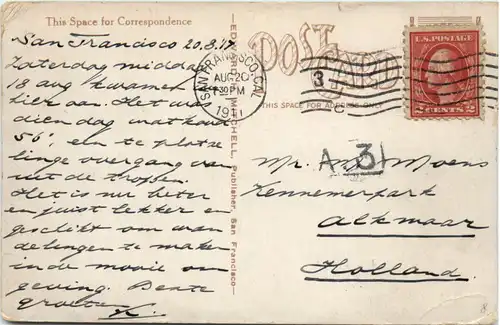 This Space for Correspondence
San Francisco 20.8.17
Zaterdag middag
18 aug kwamen
hier aan. Het was
dien dag wat koud
56°, een te plotse
linge overgang van
uit de tropen.
Het is nu beter
en juist lekker en
geschikt om wan
delingen te maken
in de mooie om
geving. Beste
groeten
EDWARD H. MITCHELL, Publisher, San Francisco
POST CARD
THIS SPACE FOR ADDRESS ONLY
SAN FRANCISCO, CAL.
AUG 20
30 PM
3
C
U.S. POSTAGE
2 CENTS 2
A 31
Mr. Moens
Kennemerpark
Alkmaar
Holland.